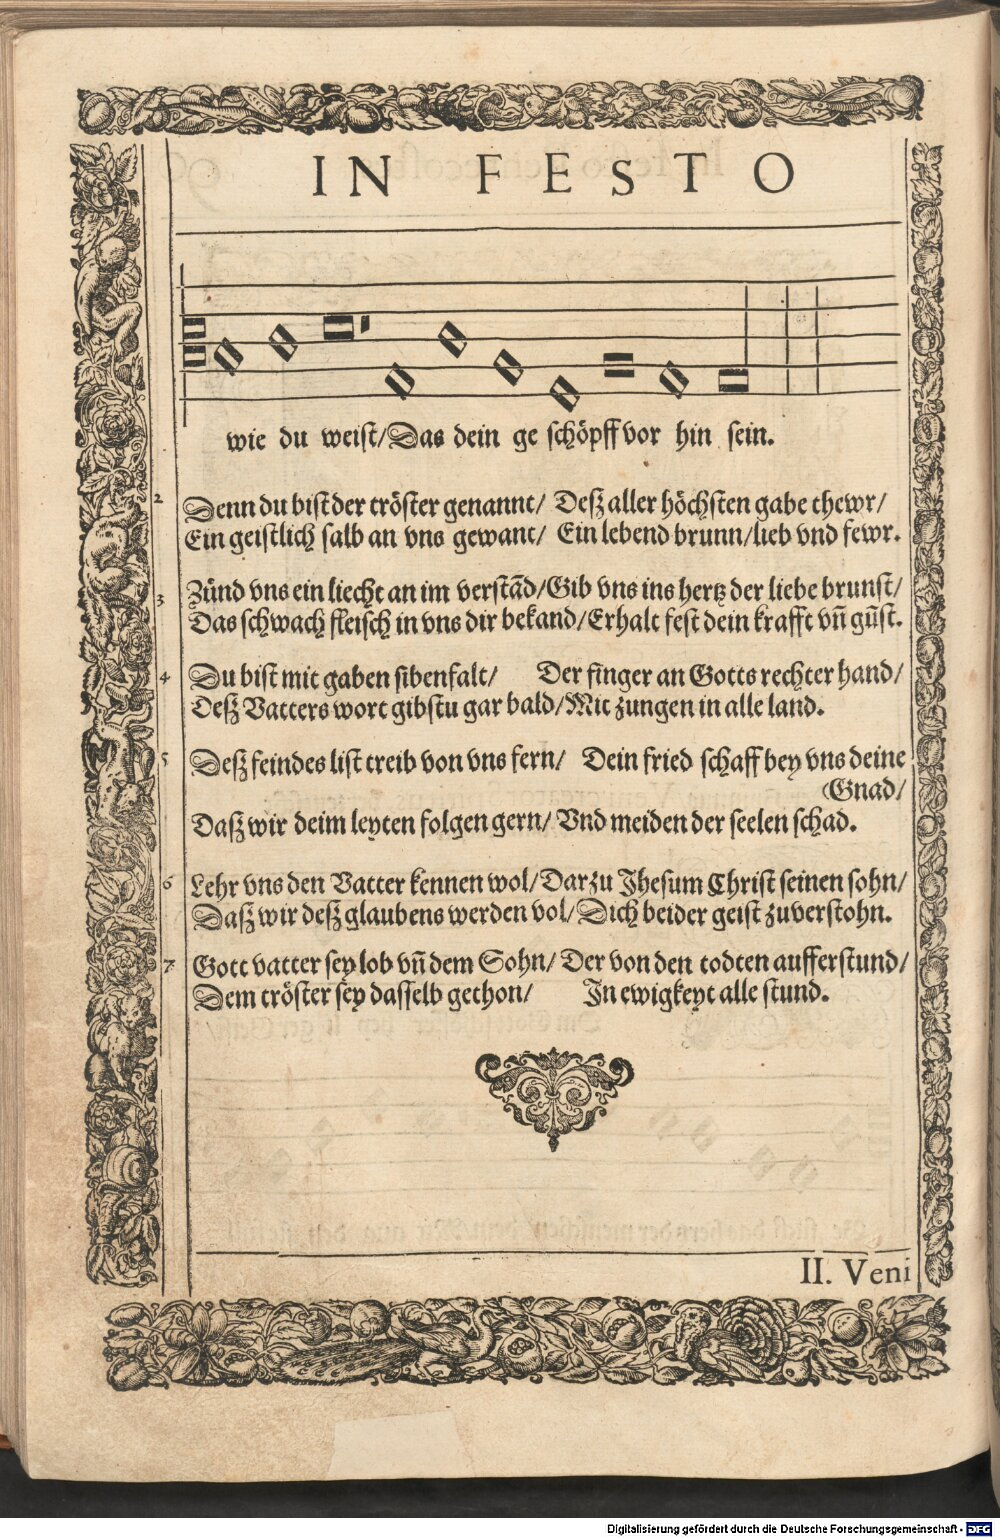 IN FESTO
wie du weist/Das dein ge schöpff vor hin sein.
2 Denn du bist der tröster genannt/ Deß aller höchsten gabe thewr/
Ein geistlich salb an vns gewant/ Ein lebend brunn/lieb vnd fewr.
3 Zünd vns ein liecht an im verstãd/Gib vns ins hertz der liebe brunst/
Das schwach fleisch in vns dir bekand/Erhalt fest dein krafft vñ gũst.
4 Du bist mit gaben sibenfalt/ Der finger an Gotts rechter hand/
Deß Vatters wort gibstu gar bald/Mit zungen in alle land.
5 Deß feindes list treib von vns fern/ Dein fried schaff bey vns deine
Gnad/
Daß wir deim leyten folgen gern/ Vnd meiden der seelen schad.
6 Lehr vns den Vatter kennen wol/Darzu Jhesum Christ seinen sohn/
Daß wir deß glaubens werden vol/Dich beider geist zuverstohn.
7 Gott vatter sey lob vñ dem Sohn/ Der von den todten aufferstund/
Dem tröster sey dasselb gethon/ In ewigkeyt alle stund.
II. Veni
Digitalisierung gefördert durch die Deutsche Forschungsgemeinschaft - DFG